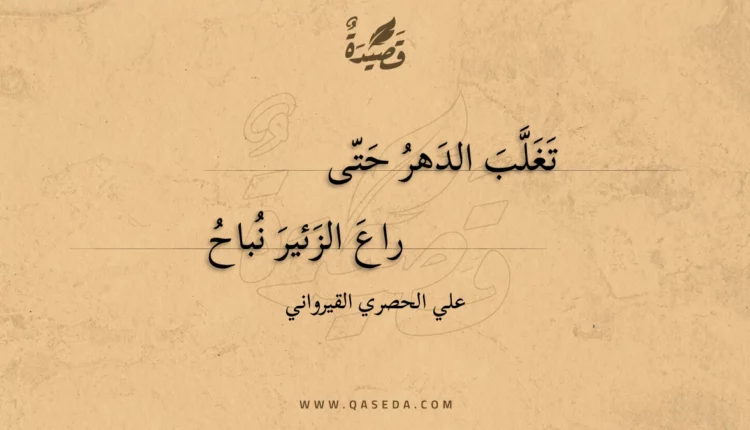 قَصِيْدَةٌ
تَغَلَّبَ الدَهرُ حَتّى
راعَ الزَئيرَ نُباحُ
علي الحصري القيرواني
WWW.QASEDA.COM